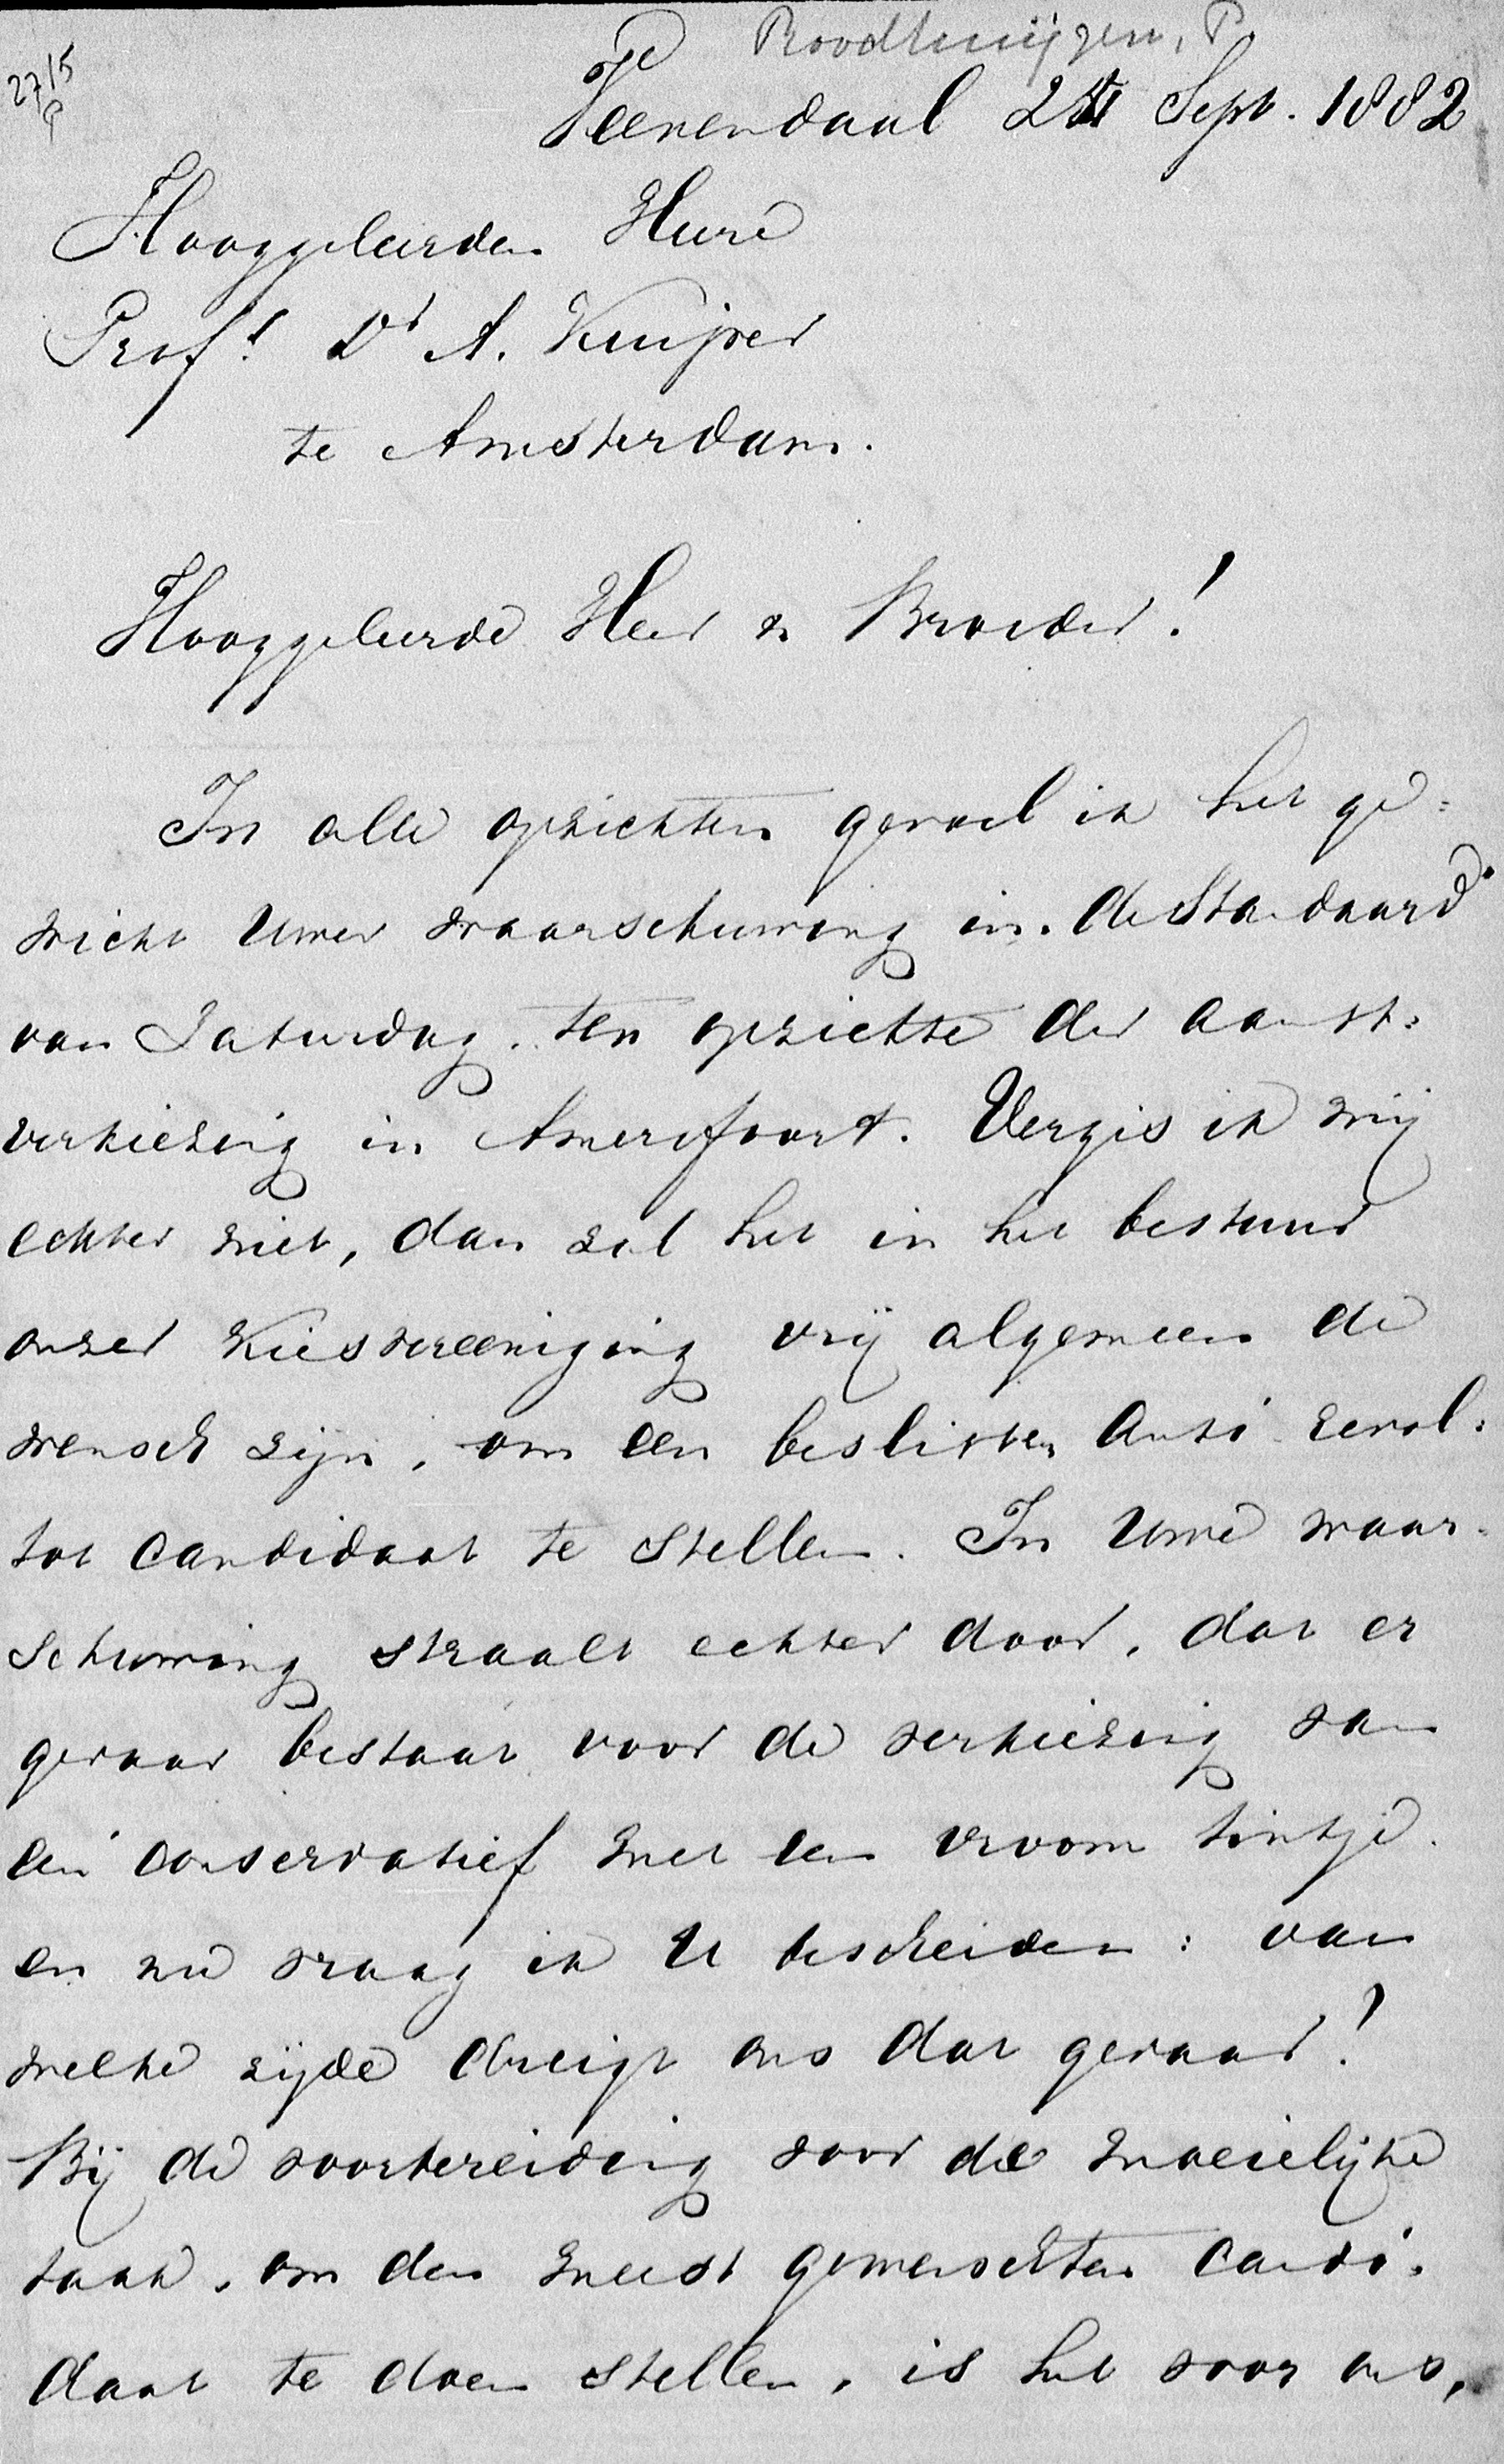 Roodhuijzen, P.
2715
Veenendaal Sept. 1882
Hooggeleerden Heere
Prof. Dr A. Kuijper
te Amsterdam.
Hooggeleerde Heer & Broeder!
In alle opzichten gevoel ik het ge=
wicht Uwer waarschuwing in. de Standaard"
van Saturdag. ten opzichte der aanst:
verkiezing in Amersfoort. Vergis ik mij
echter niet, dan zal het in het bestuur
onzer Kiesvereeniging vrij algemeen de
wensch zijn, om een beslisten Anti revol:
tot candidaat te stellen. In Uwe waar-
schuwing straalt echter door, dat er
gevaar bestaat voor de verkiezing van
een conservatief met een vroom tintje.
en nu vraag ik U bescheiden: van
welke zijde dreigt ons dat gevaar?
Bij de voorbereiding voor de moeielijke
taak, om den meest gewenschten candi-
daat te doen stellen, is het voor ons,